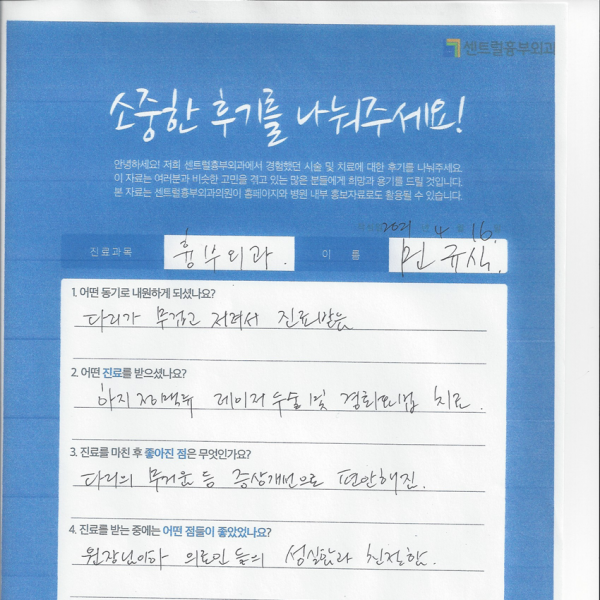 센트럴흉부외과
소중한 후기를 나눠주세요!
안녕하세요! 저희 센트럴흉부외과에서 경험했던 시술 및 치료에 대한 후기를 나눠주세요.
이 자료는 여러분과 비슷한 고민을 겪고 있는 많은 분들에게 희망과 용기를 드릴 것입니다.
본 자료는 센트럴흉부외과의원이 홈페이지와 병원 내부 홍보자료로도 활용될 수 있습니다.
2021 4 16
진료과목 흉부외과. 이 름 민규식
1. 어떤 동기로 내원하게 되셨나요?
다리가 무겁고 저려서 진료받음
2. 어떤 진료를 받으셨나요?
하지정맥류 레이저수술 및 경화요법 치료.
3. 진료를 마친 후 좋아진 점은 무엇인가요?
다리의 무거운 등 증상개선으로 편안해진.
4. 진료를 받는 중에는 어떤 점들이 좋았었나요?
원장님이하 의료인들의 성실함과 친절함.